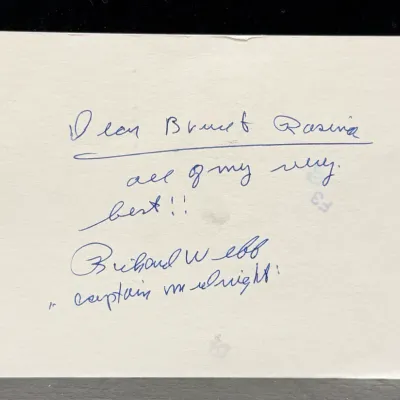 Dear Bruce & Rosina
all of my very
best!!
Richard Webb
"captain midnight"